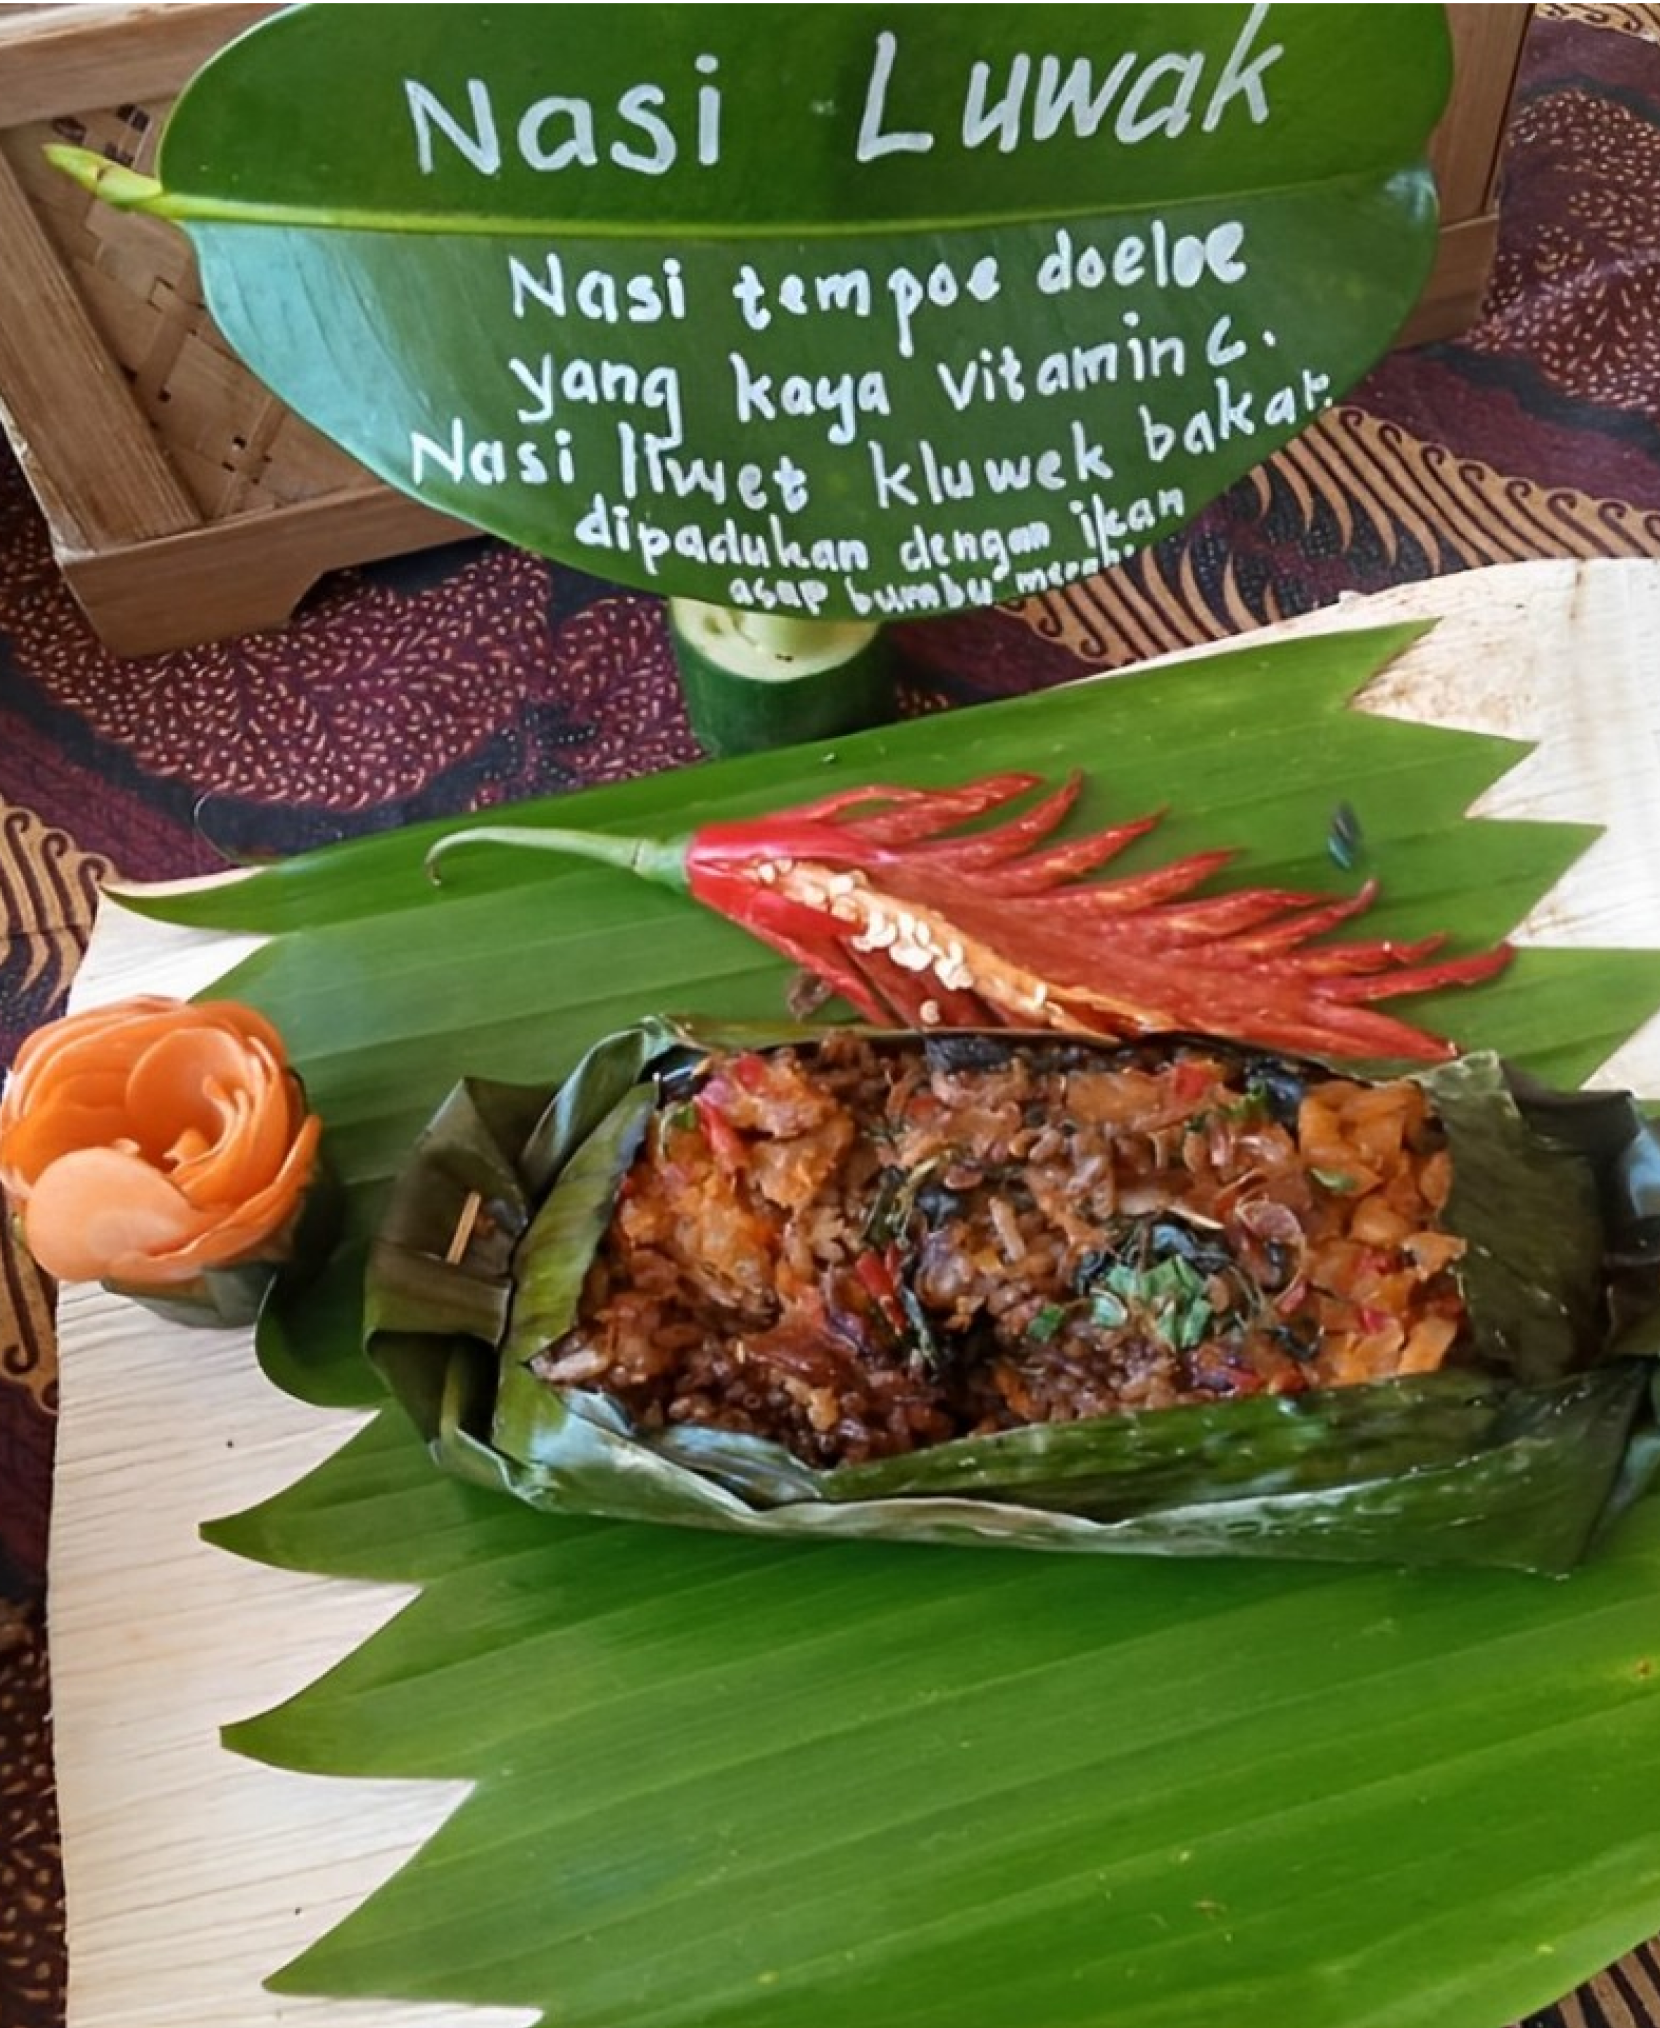 Nasi Luwak
Nasi tempoe doeloe
yang kaya vitamin c.
Nasi liwet kluwek bakar.
dipadukan dengan ikan
asap bumbu merah.